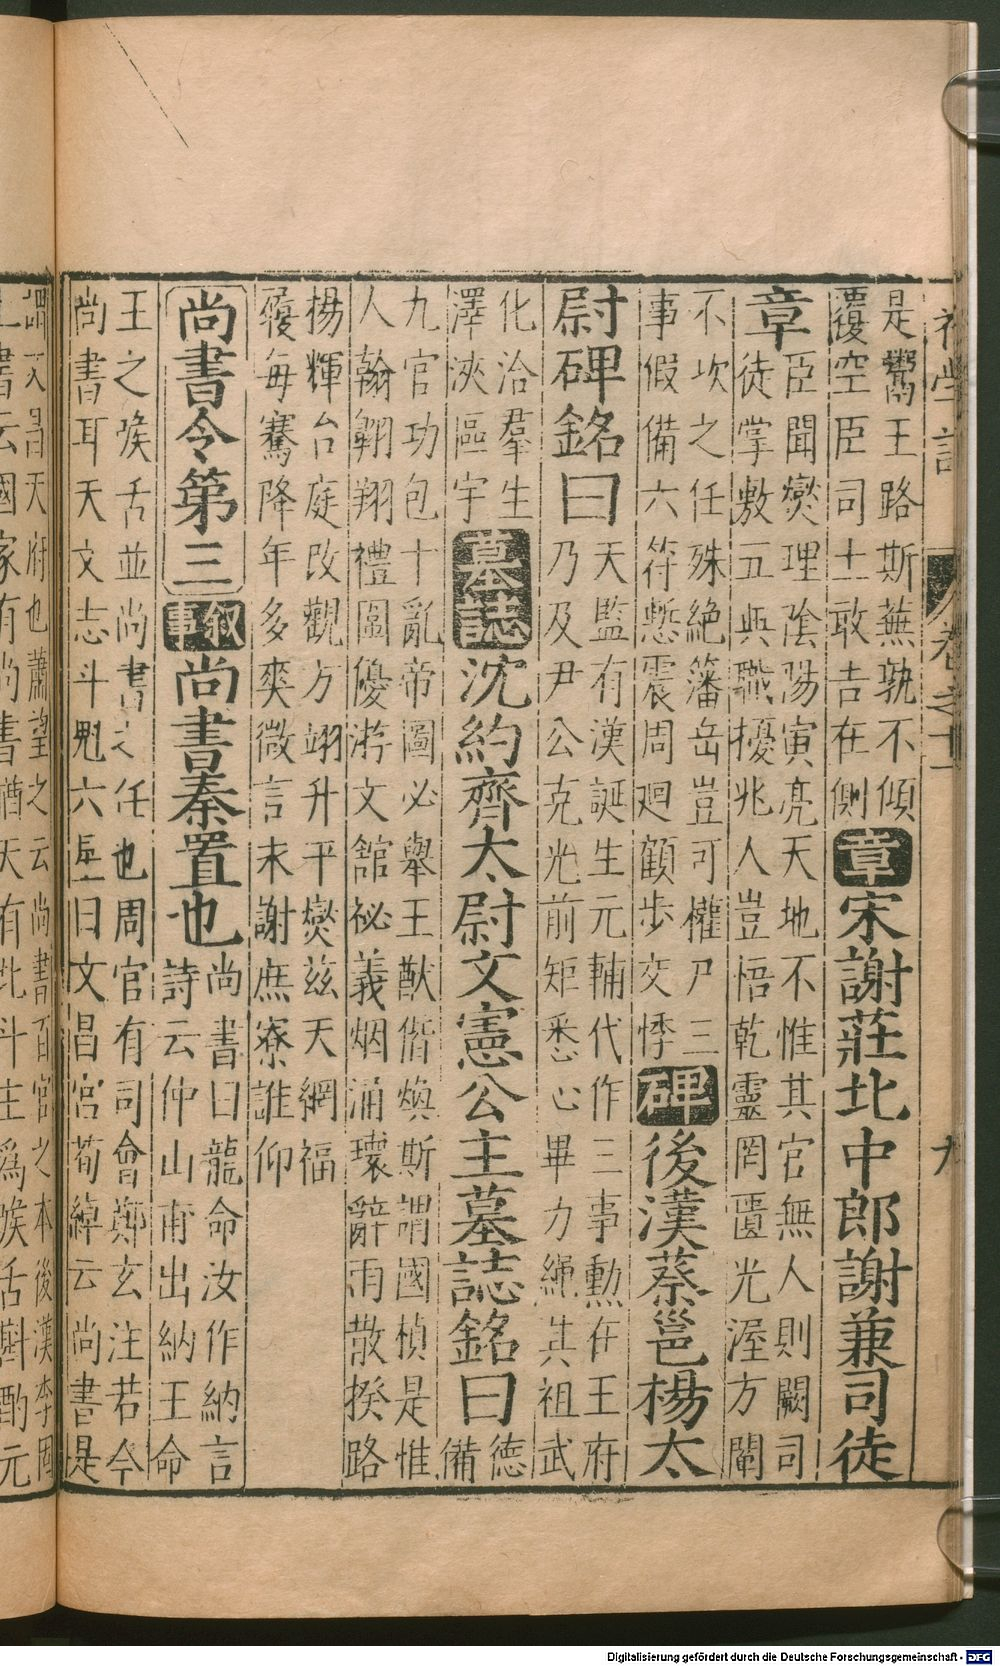 初學記　卷之十一　九
是鬻王路斯蕪孰不傾
覆空臣司士敢吉在側
章宋謝莊北中郎謝兼司徒
章
臣聞爕理隂陽寅亮天地不惟其官無人則闕司
徒掌敷五典職擾兆人豈悟乾靈罔匱光渥方闡
不次之任殊絕藩岳豈可權尸三
事假備六符慙震周迴顧步交悸
碑後漢蔡邕楊太
尉碑銘曰
天監有漢誕生元輔代作三事勳在王府
乃及尹公克光前矩悉心畢力繩其祖武
化洽羣生
澤浹區宇
墓誌沈約齊太尉文憲公主墓誌銘曰
德
備
九官功包十亂帝圖必舉王猷偕煥斯謂國楨是惟
人翰翺翔禮圖優游文舘祕義烟涌瓌辭雨散揆路
楊輝台庭改觀方翊升平爕兹天網福
履每騫降年多爽微言未謝庶寮誰仰
尚書令第三
叙事尚書秦置也
尚書曰龍命汝作納言
詩云仲山甫出納王命
王之喉舌並尚書之任也周官有司會鄭玄注若今
尚書耳天文志斗魁六星曰文昌宮荀綽云尚書是
謂文昌天府也蕭望之云尚書百官之本後漢李固
上書云國家有尚書猶天有北斗主爲喉舌斟酌元
Digitalisierung gefördert durch die Deutsche Forschungsgemeinschaft - DFG